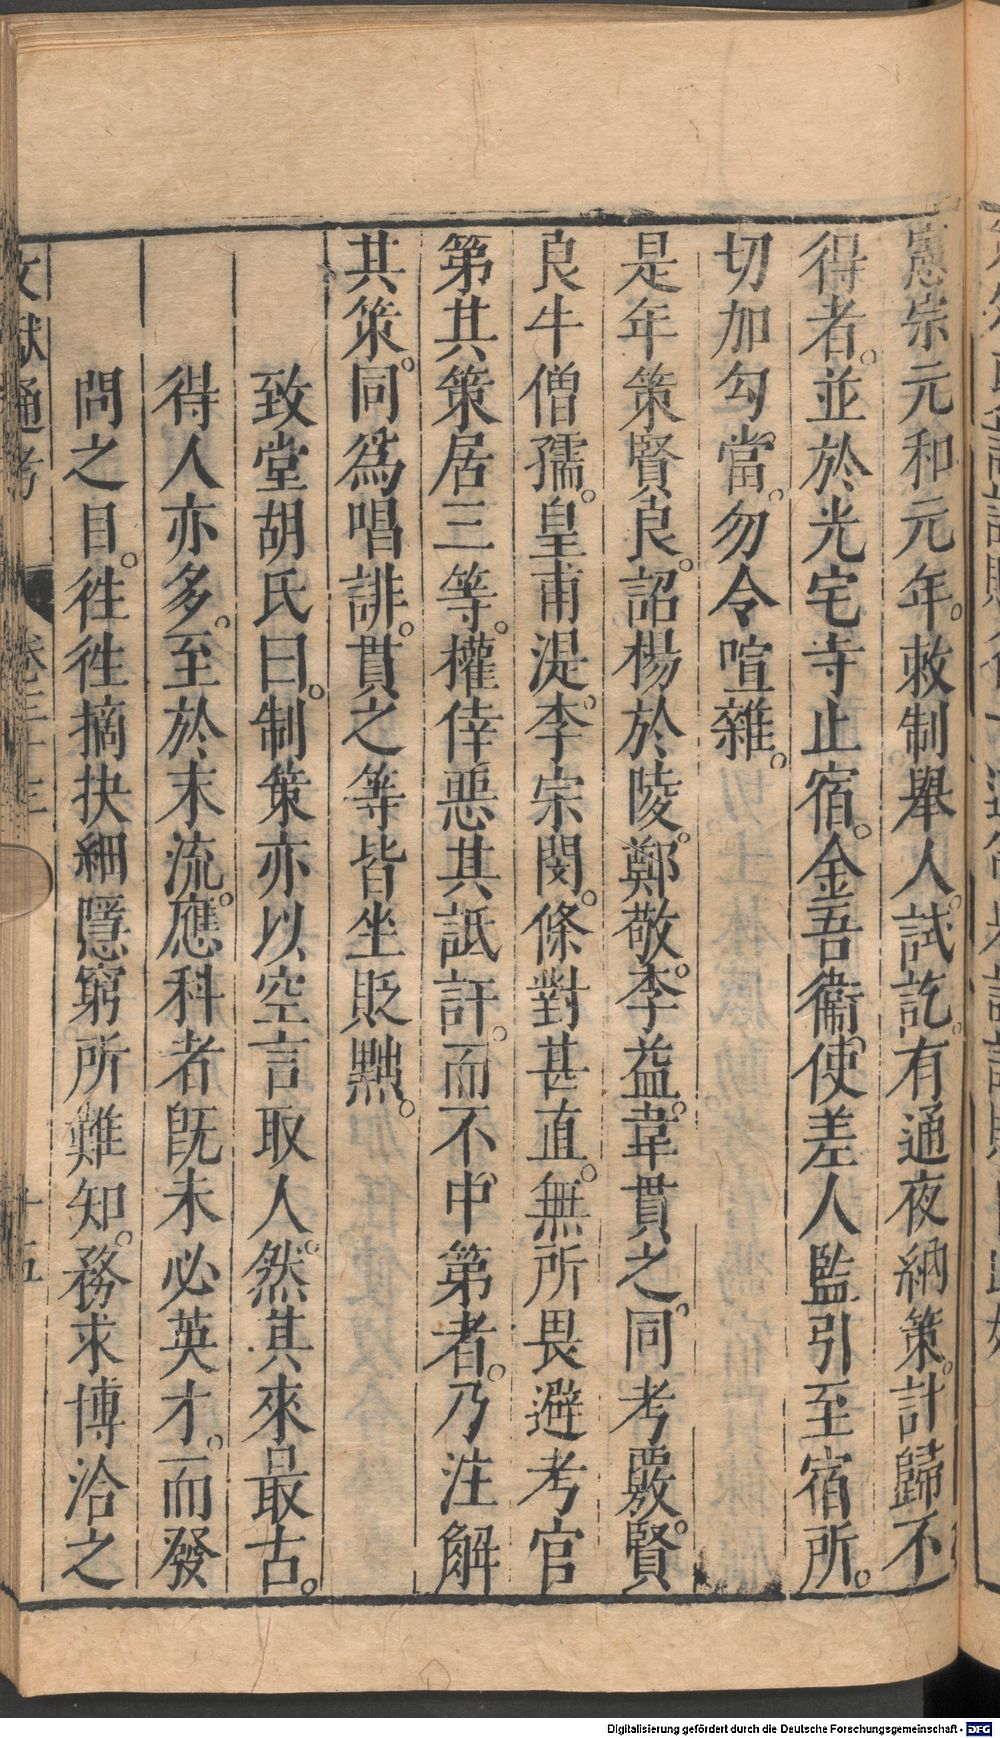 憲宗元和元年。敕制舉人。試訖。有通夜納策。計歸不
得者。並於光宅寺止宿。金吾衞使差人監引至宿所。
切加勾當。勿令喧雜。
是年策賢良。詔楊於陵。鄭敬。李益。韋貫之。同考覈。賢
良牛僧孺。皇甫湜。李宗閔。條對甚直。無所畏避考官
第其策居三等。權倖惡其詆訐。而不中第者。乃注解
其策。同爲唱誹。貫之等皆坐貶黜。
致堂胡氏曰。制策亦以空言取人。然其來最古。
得人亦多。至於末流。應科者旣未必英才。而發
問之目。徃徃摘抉細隱窮所難知。務求博洽之
文獻通考 卷三十三 十五
Digitalisierung gefördert durch die Deutsche Forschungsgemeinschaft - DFG